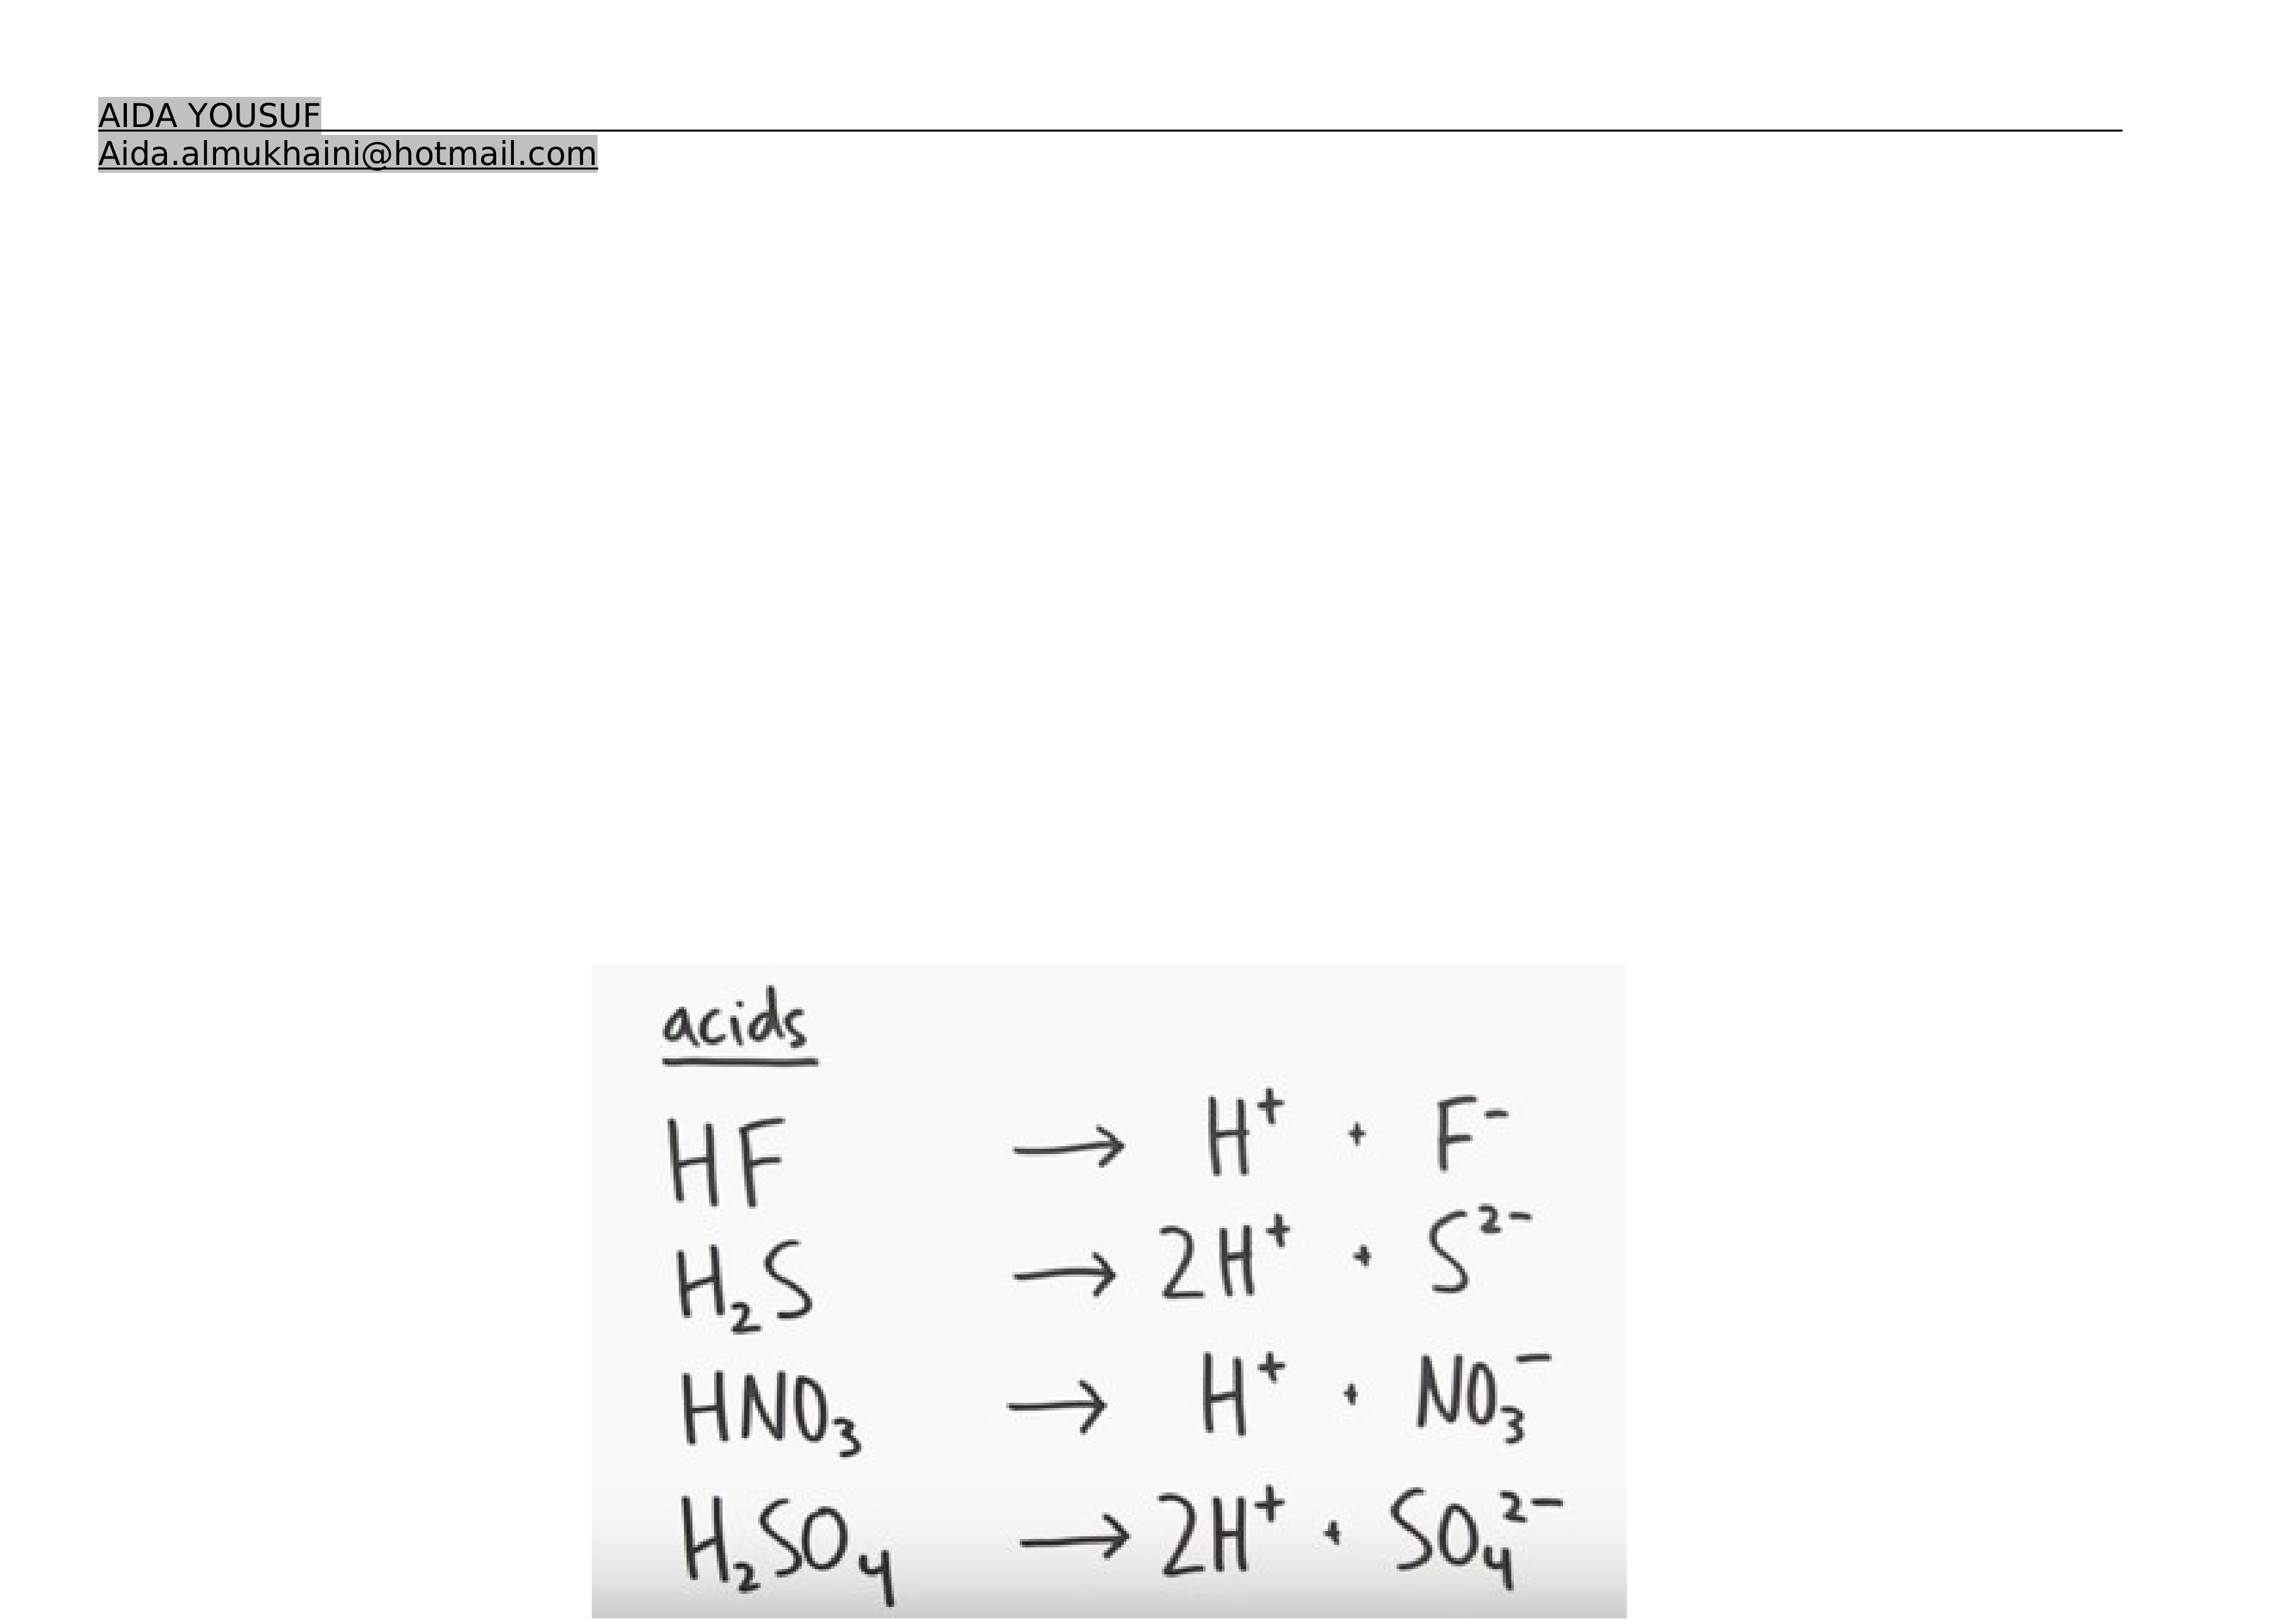 AIDA YOUSUF
Aida.almukhaini@hotmail.com
acids
HF → H⁺ + F⁻
H₂S → 2H⁺ + S²⁻
HNO₃ → H⁺ + NO₃⁻
H₂SO₄ → 2H⁺ + SO₄²⁻